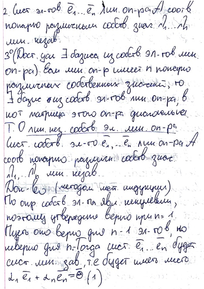 2. Сист. эл-тов e̅₁...e̅ₙ лин. оп-ра A соотв
попарно различным собств. знач. λ₁...λₙ
лин. незав.
3° (Дост. усл ∃ базиса из собств эл-тов лин
оп-ра) если лин. оп-р имеет n попарно
различных собственных значений, то
∃ базис из собств. эл-тов лин оп-ра, в
кот матрица этого оп-ра диагональна.
Т. О лин. нез. собств. эл. лин. оп-ра
Сист. собств. эл-тов e̅₁...e̅ₙ лин оп-ра A
соотв попарно различн собств. знач.
λ₁, λₙ лин. незав.
Док-во (методом мат. индукции)
По опр собств эл-та явл. ненулевым,
поэтому утверждение верно при n=1
Пусть оно верно для n-1 эл-тов, но
неверно для n тогда сист. e̅₁...e̅ₙ будет
сист. лин зав, т.е будет иметь место
α₁e̅₁+αₙe̅ₙ=0̅ (1)